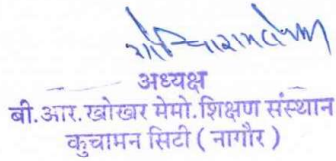 अध्यक्ष
बी.आर.खोखर मेमो.शिक्षण संस्थान
कुचामन सिटी ( नागौर )